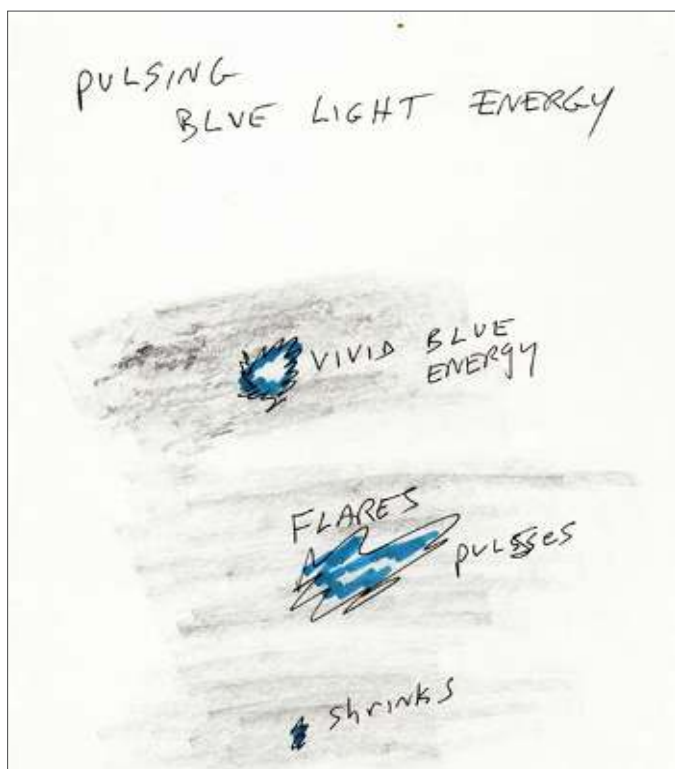 PULSING
BLUE LIGHT ENERGY
VIVID BLUE
ENERGY
FLARES
PULSSES
shrinks